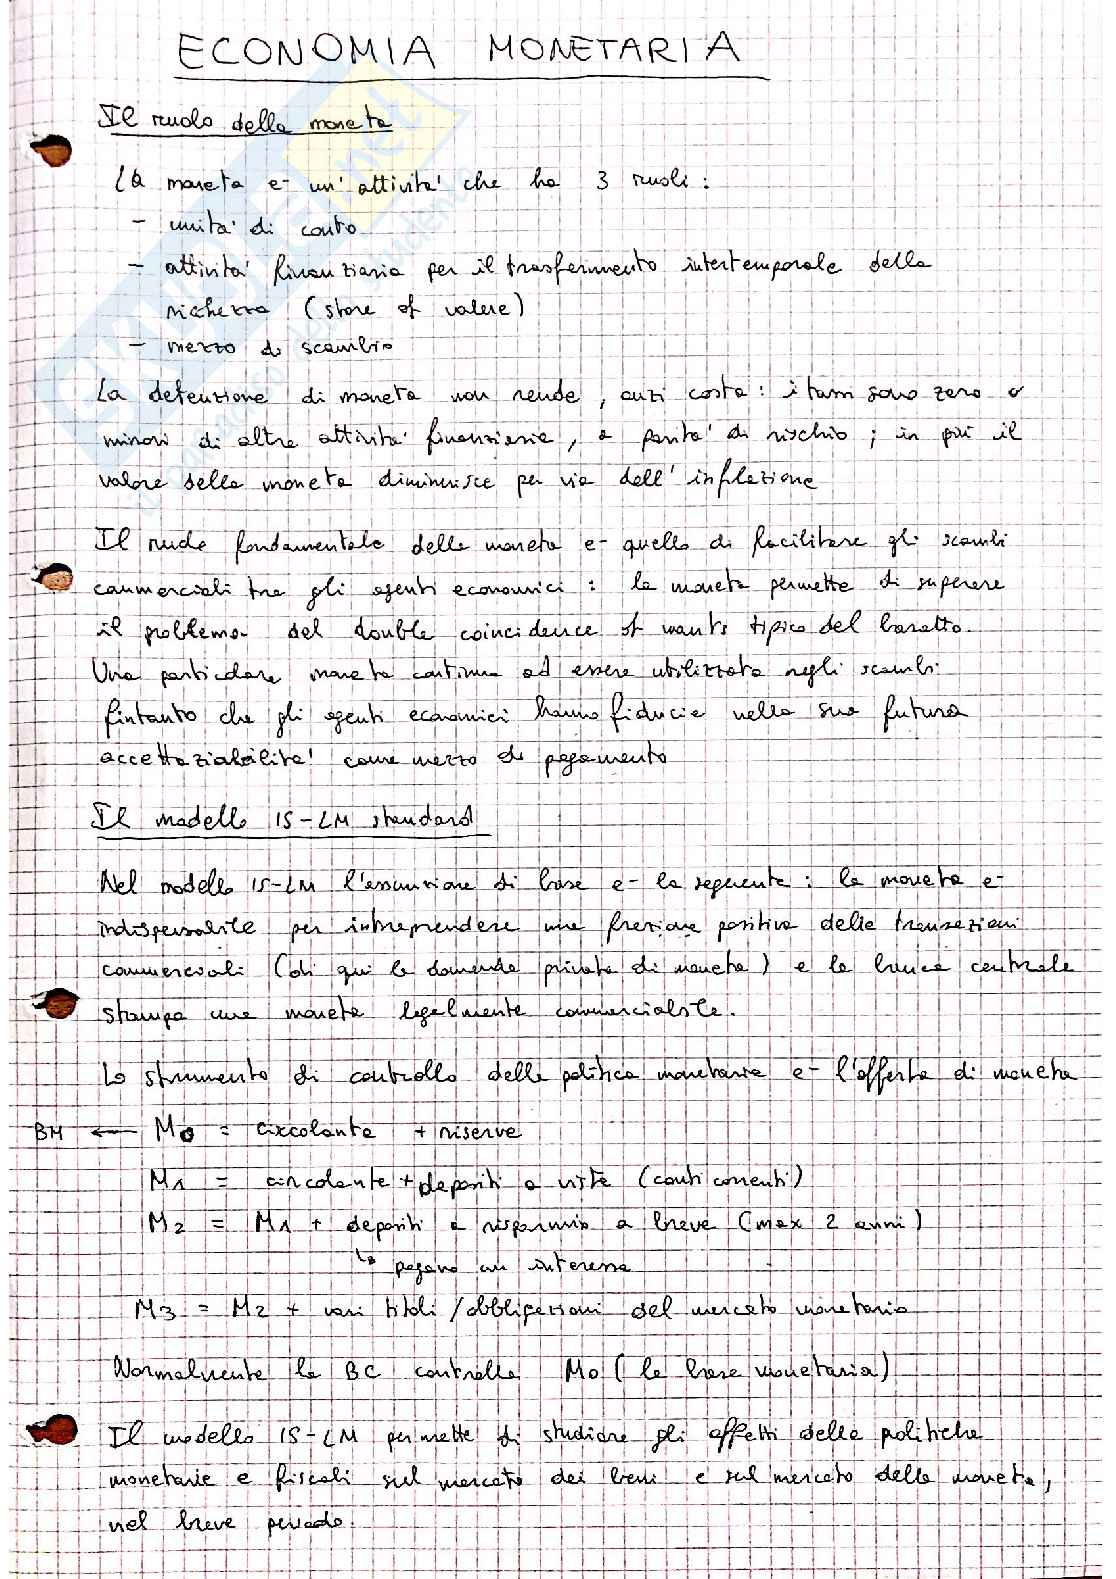 ECONOMIA MONETARIA
Il ruolo della moneta
La moneta e- un' attivita' che ha 3 ruoli:
- unita' di conto
- attivita' finanziaria per il trasferimento intertemporale della
ricchezza (store of valere)
- mezzo di scambio
La detenzione di moneta non rende, anzi costa: i tassi sono zero o
minori di altre attivita' finanziarie, a parita' di rischio; in più il
valore della moneta diminuisce per via dell' inflazione
Il ruolo fondamentale della moneta e- quello di facilitare gli scambi
commerciali tra gli agenti economici: la moneta permette di superare
il problema del double coincidence of wants tipico del baratto.
Una particolare moneta continua ad essere utilizzata negli scambi
fintanto che gli agenti economici hanno fiducia nella sua futura
accettaziabilita' come mezzo di pagamento
Il modello IS-LM standard
Nel modello IS-LM l'assunzione di base e- la seguente: la moneta e-
indispensabile per intreprendere una frazione positiva delle transazioni
commerciali (di qui la domanda privata di moneta) e la banca centrale
stampa una moneta legalmente commerciabile.
Lo strumento di controllo della politica monetaria e- l'offerta di moneta
BM ← M0 = circolante + riserve
M1 = circolante + depositi a vista (conti correnti)
M2 = M1 + depositi a risparmio a breve (max 2 anni)
↳ pagano un interesse
M3 = M2 + vari titoli/obbligazioni del mercato monetario
Normalmente la BC controlla M0 (la base monetaria)
Il modello IS-LM permette di studiare gli effetti delle politiche
monetarie e fiscali sul mercato dei beni e sul mercato della moneta,
nel breve periodo.